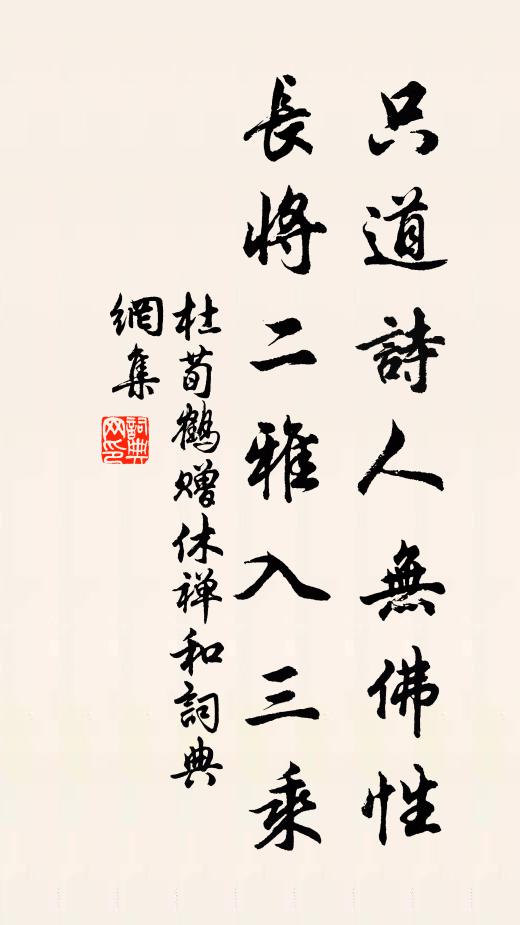 只道詩人無佛性
長將二雅入三乘
杜荀鶴赠休禅和詞典
網集
詞典
网印